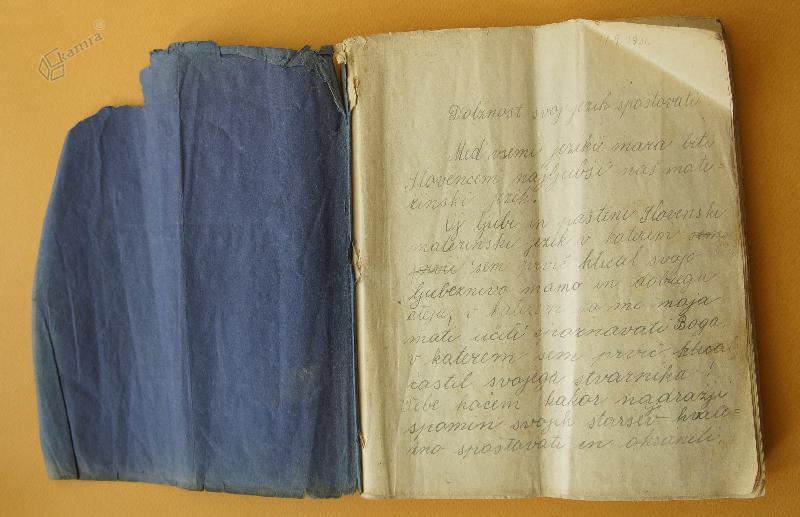 kamra
Dolznost svoj jezik spoštovati
Med vsemi jeziki mara biti
Slovencem najljubši naš mate-
rinski jezik.
Oj ljubi in pošteni Slovenski
materinski jezik v katerem sem
sem prvič klical svojo
ljubeznivo mamo in dobrega
ateja, v katerem so me moja
mati učili spoznavati Boga
v katerem sem prvič klical
častil svojega stvarnika!
Tebe hočem kakor nadražji
spomin svojih staršev hvale-
žno spoštovati in ohraniti.